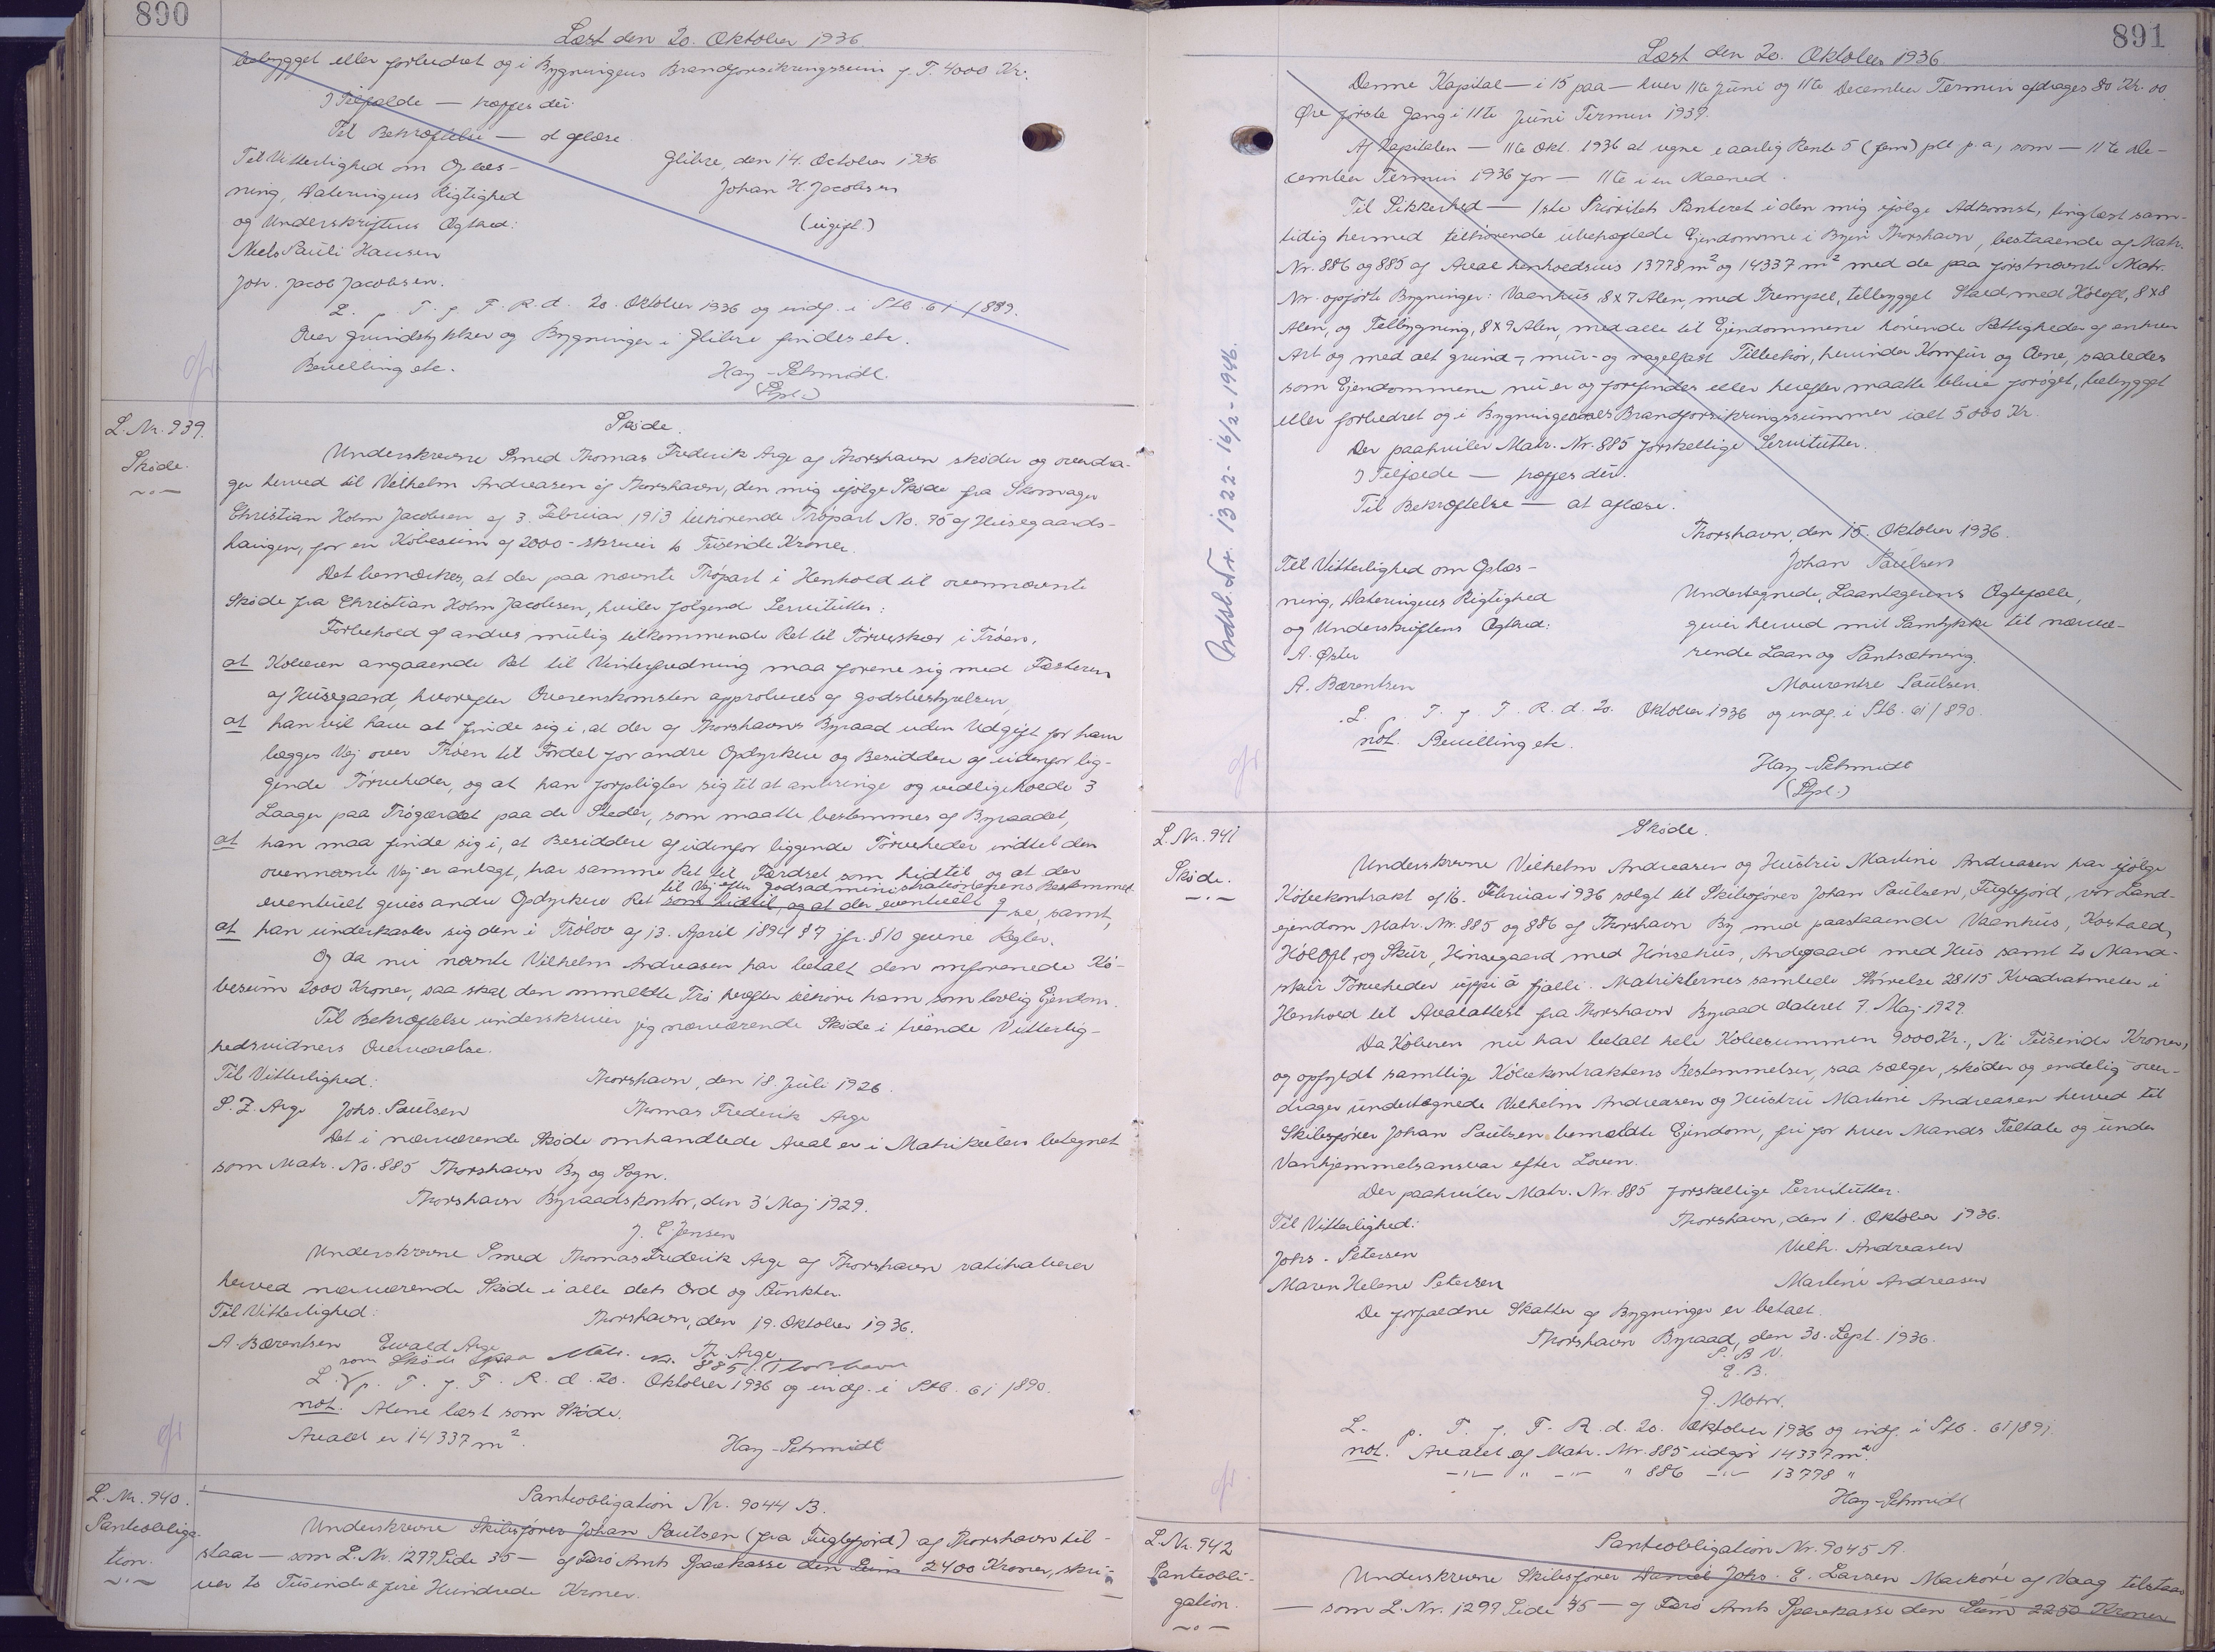 890
Læst den 20. Oktober 1936
bebygget eller forbedret og i Bygningens Brandforsikringssum f. T. 4000 Kr.
I Tilfælde — træffes der
Til Bekræftelse — at aflæse.
Til Vitterlighed om Oplæs-
ning, Dateringens Rigtighed
og Underskriftens Ægthed:
Niels Pauli Hansen
Joh. Jacob Jacobsen.
Glibre, den 14. October 1936
Johan H. Jacobsen
(ugift.)
L. p. T. f. T. R. d. 20. Oktober 1936 og indf. i Ptb. 61/889.
Over Grundstykker og Bygninger i Glibre findes etc.
Bevilling etc.
Hay-Schmidt.
(Spl.)
L. Nr. 939.
Skøde.
Skøde.
Underskrevne Smed Thomas Frederik Arge af Thorshavn skøder og overdra-
ger herved til Vilhelm Andreasen af Thorshavn, den mig ifølge Skøde fra Skomager
Christian Holm Jacobsen af 3. Februar 1913 tilhørende Trøpart No. 95 af Husegaards-
haugen, for en Købesum af 2000 - skriver to Tusende Kroner.
Det bemærkes, at der paa nævnte Trøpart i Henhold til ovennævnte
Skøde fra Christian Holm Jacobsen, hviler følgende Servitutter:
Forbehold af andres mulig tilkommende Ret til Tørveskær i Trøen,
at Køberen angaaende Ret til Vinterfredning maa forene sig med Fæsteren
af Husegaard, hvorefter Overenskomsten approberes af Godsbestyrelsen,
at han vil have at finde sig i, at der af Thorshavns Byraad uden Udgift for ham
lægges Vej over Trøen til Fordel for andre Opdyrkere og Besiddere af udenfor lig-
gende Tørveheder, og at han forpligter sig til at anbringe og vedligeholde 3
Laager paa Trøgærdet paa de Steder, som maatte bestemmes af Byraadet,
at han maa finde sig i, at Besiddere af udenfor liggende Tørveheder indtil den
ovennævnte Vej er anlagt, har samme Ret til Færdsel som hidtil og at der
til Vej efter Godsadministrationens Bestemmel-
eventuelt gives andre Opdyrkere Ret som hidtil, og at der eventuelt g se, samt,
at han underkaster sig den i Trølov af 13. April 1894 § 7 jfr. § 10 givne Regler.
Og da nu nævnte Vilhelm Andreasen har betalt den omforenede Kø-
besum 2000 Kroner, saa skal den ommeldte Trø herefter tilhøre ham som lovlig Ejendom.
Til Bekræftelse underskriver jeg nærværende Skøde i tvende Vitterlig-
hedsvidners Overværelse.
Til Vitterlighed:
Thorshavn, den 18. Juli 1926.
S. Z. Arge Johs. Paulsen
Thomas Frederik Arge
Det i nærværende Skøde omhandlede Areal er i Matrikulen betegnet
som Matr. No. 885 Thorshavn By og Sogn.
Thorshavn Byraadskontor, den 3' Maj 1929.
J. C Jensen
Underskrevne Smed Thomas Frederik Arge af Thorshavn ratihaberer
herved nærværende Skøde i alle dets Ord og Punkter.
Til Vitterlighed:
Thorshavn, den 19. Oktober 1936.
A. Bærentsen Ewald Arge
Th. Arge
som Skøde paa Matr. nr. 885, Thorshavn
L. p. T. f. T. R. d. 20. Oktober 1936 og indf. i Ptb. 61/890.
not. Alene læst som Skøde.
Arealet er 14337 m².
Hay-Schmidt
L. Nr. 940.
Panteobliga-
tion.
Panteobligation Nr. 9044 B.
Underskrevne Skibsfører Johan Paulsen (fra Fuglefjord) af Thorshavn til-
staar — som L. Nr. 1277 Side 35 — af Færø Amts Sparekasse den Sum 2400 Kroner, skri-
ver to Tusinde & fire Hundrede Kroner.
891
Læst den 20. Oktober 1936.
Denne Kapital — i 15 paa — hver 11te Juni og 11te December Termin afdrages 80 Kr. 00
Øre første Gang i 11te Juni Termin 1937.
Af Kapitalen — 11te Okt. 1936 at regne e aarlig Rente 5 (fem) pct p. a, som — 11te De-
cember Termin 1936 for — 11te i en Maaned.
Til Sikkerhed — 1ste Prioritets Panteret i den mig ifølge Adkomst, tinglæst sam-
tidig hermed tilhørende ubehæftede Ejendomme i Byen Thorshavn, bestaaende af Matr.
Nr. 886 og 885 af Areal henholdsvis 13778 m² og 14337 m² med de paa førstnævnte Matr.
Nr. opførte Bygninger: Vaanhus 8 x 7 Alen, med Trempel, tilbygget Stald med Høloft, 8 x 8
Alen, og Tilbygning, 8 x 9 Alen, med alle til Ejendommene hørende Rettigheder af enhver
Art og med alt grund-, mur- og nagelfast Tilbehør, herunder Komfur og Ovne, saaledes
som Ejendommene nu er og forefindes eller herefter maatte blive forøget, bebygget
eller forbedret og i Bygningernes Brandforsikringssummer ialt 5000 Kr.
Der paahviler Matr. Nr. 885 forskellige Servitutter.
I Tilfælde — træffes der.
Til Bekræftelse — at aflæse.
Thorshavn, den 15. Oktober 1936.
Til Vitterlighed om Oplæs-
ning, Dateringens Rigtighed
og Underskriftens Ægthed:
A. Øster
A. Bærentsen
Johan Paulsen
Undertegnede, Laantagerens Ægtefælle,
giver herved mit Samtykke til nærvæ-
rende Laan og Pantsætning.
Mourentse Paulsen.
L. p. T. f. T. R. d. 20. Oktober 1936 og indf. i Ptb. 61/890.
not. Bevilling etc.
Hay-Schmidt
(Spl.)
Udsl. L. Nr. 1322 - 16/2 - 1946.
L. Nr. 941
Skøde.
Skøde.
Underskrevne Vilhelm Andreasen og Hustru Martine Andreasen har ifølge
Købekontrakt af 16. Februar 1936 solgt til Skibsfører Johan Paulsen, Fuglefjord, vor Land-
ejendom Matr. Nr. 885 og 886 af Thorshavn By med paastaaende Vaanhus, Kostald,
Høloft, og Skur, Hönsegaard med Hönsehus, Andegaard med Hus samt to Mand-
skur Tørveheder uppi á fjalli. Matriklernes samlede Størrelse 28115 Kvadratmeter i
Henhold til Arealattest fra Thorshavn Byraad dateret 7. Maj 1929.
Da Køberen nu har betalt hele Købesummen 9000 Kr., Ni Tusinde Kroner,
og opfyldt samtlige Købekontraktens Bestemmelser, saa sælger, skøder og endelig over-
drager undertegnede Vilhelm Andreasen og Hustru Martine Andreasen herved til
Skibsfører Johan Paulsen bemeldte Ejendom, fri for hver Mands Tiltale og under
Vanhjemmelsansvar efter Loven.
Der paahviler Matr. Nr. 885 forskellige Servitutter.
Til Vitterlighed:
Thorshavn, den 1. Oktober 1936.
Johs. Petersen
Vilh. Andreasen
Maren Helene Petersen
Martine Andreasen
De forfaldne Skatter af Bygninger er betalt.
Thorshavn Byraad, den 30. Sept. 1936.
P. B. V.
E. B.
J. Mohr.
L. p. T. f. T. R. d. 20. Oktober 1936 og indf. i Ptb. 61/891.
not. Arealet af Matr. Nr. 885 udgør 14337 m².
-"- " -"- " 886 -"- 13778 "
Hay-Schmidt
L. Nr. 942
Panteobli-
gation.
Panteobligation Nr. 9045 A.
Underskrevne Skibsfører Daniel Johs. E. Larsen Markøre af Vaag tilstaar
— som L. Nr. 1277 Side 35 — af Færø Amts Sparekasse den Sum 2250 Kroner